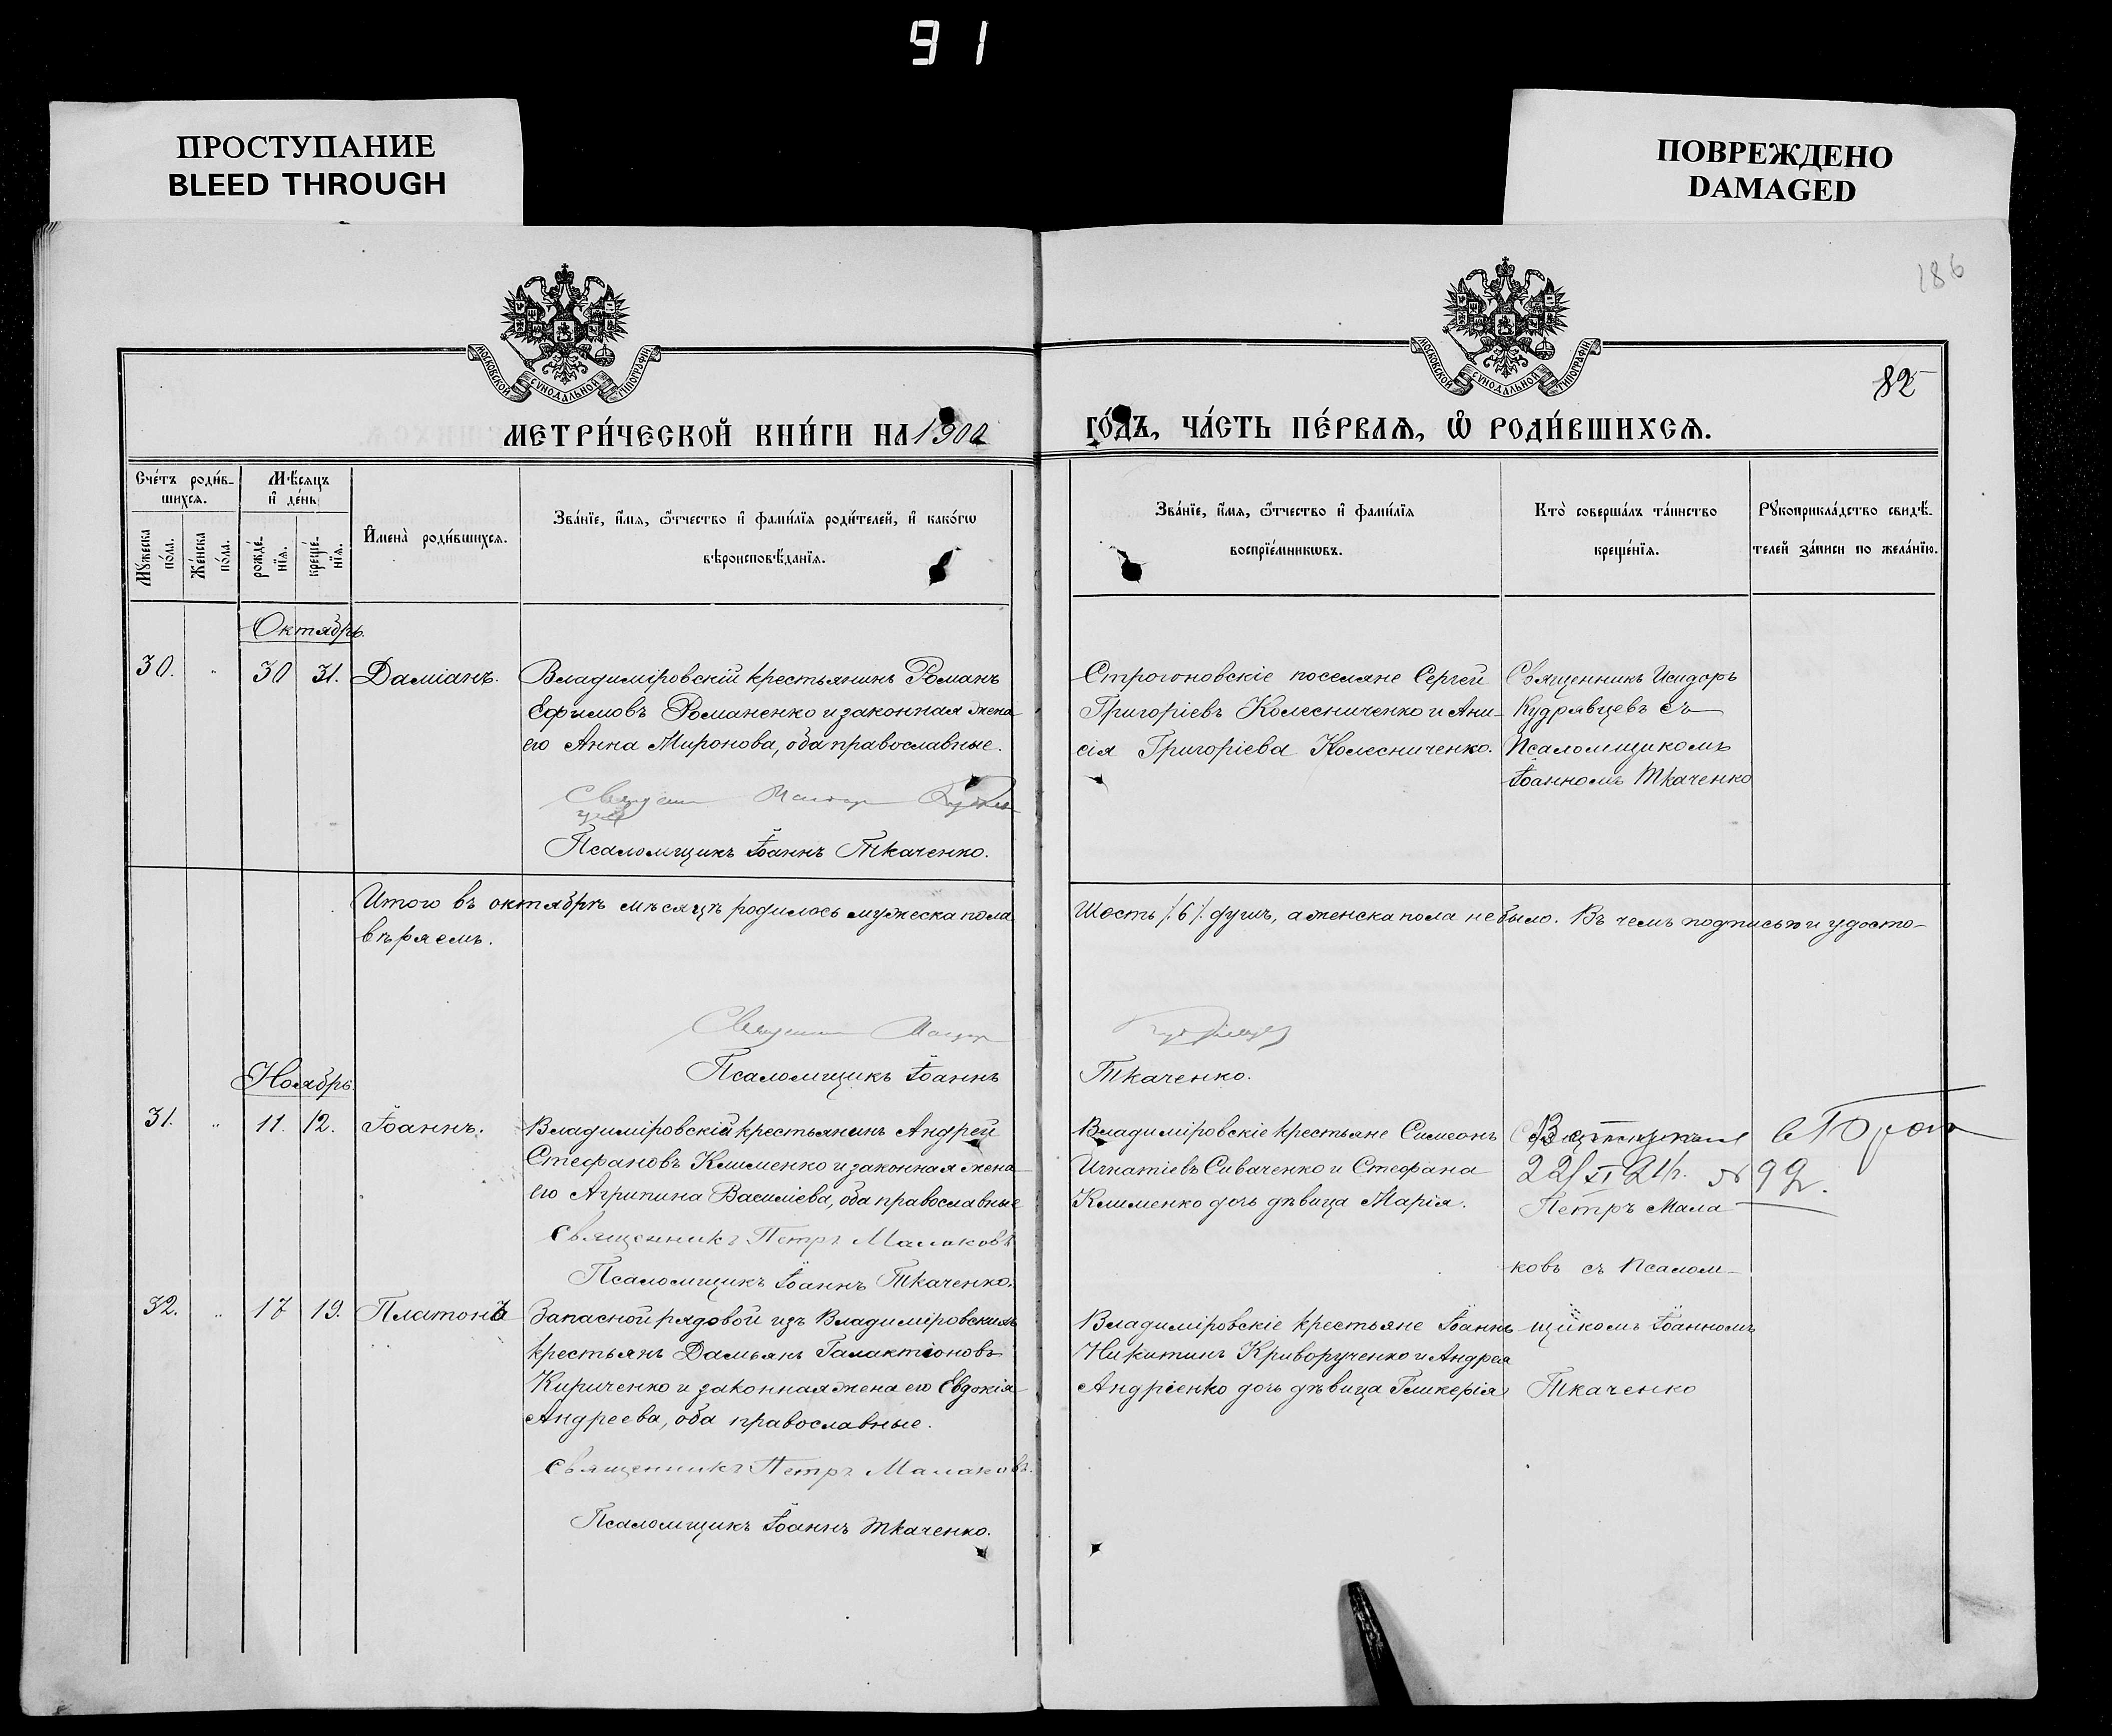 91
ПРОСТУПАНИЕ
BLEED THROUGH
ПОВРЕЖДЕНО
DAMAGED
186
МОСКОВСКОЙ СУНОДАЛЬНОЙ ТИПОГРАФІИ
МОСКОВСКОЙ СУНОДАЛЬНОЙ ТИПОГРАФІИ
82
МЕТРИ́ЧЕСКОЙ КНИ́ГИ НА 1900
ГО́ДЪ, ЧА́СТЬ ПЕ́РВАѦ, Ѡ҆ РОДИ́ВШИХСѦ.
Сче́тъ роди́в-
шихсѧ.
Мꙋжеска по́ла.
Же́нска по́ла.
Мѣ́сѧцъ
и҆ де́нь
рожде́-
нїѧ.
креще́-
нїѧ.
И҆мена̀ роди́вшихсѧ.
Зва́нїе, и҆́мѧ, ѻ҆́тчество и҆ фами́лїѧ роди́телей, и҆ како́гѡ
вѣроисповѣ́данїѧ.
Зва́нїе, и҆́мѧ, ѻ҆́тчество и҆ фами́лїѧ
воспрїе́мникѡвъ.
Кто̀ соверша́лъ та́инство
креще́нїѧ.
Рꙋкоприкла́дство свидѣ́-
телей за́писи по жела́нїю.
Октябрь.
30. " 30 31. Даміанъ.
Владиміровскій крестьянинъ Романъ
Ефимовъ Романенко и законная жена
его Анна Миронова, оба православные.
Строгоновскіе поселяне Сергей
Григоріевъ Колесниченко и Ани-
сія Григоріева Колесниченко.
Священникъ Исидоръ
Кудрявцевъ съ
Псаломщикомъ
Іоанномъ Ткаченко
Псаломщикъ Іоаннъ Ткаченко.
Итого въ октябрѣ мѣсяцѣ родилось мужеска пола
Шость /:6:/ душъ, а женска пола не было. Въ чемъ подписью и удосто-
вѣряемъ.
Псаломщикъ Іоаннъ
Ткаченко.
Ноябрь.
31. " 11. 12. Іоаннъ.
Владиміровскій крестьянинъ Андрей
Стефановъ Клименко и законная жена
его Агрипина Василіева, оба православные
Священникъ Петръ Малаковъ
Псаломщикъ Іоаннъ Ткаченко.
Владиміровскіе крестьяне Симеонъ
Игнатіевъ Сиваченко и Стефана
Клименко дочь дѣвица Марія.
22/XI 24г. № 92.
Петръ Мала
ковъ съ Псалом-
щикомъ Іоанномъ
Ткаченко
32. " 17 19. Платонъ
Запасной рядовой изъ Владиміровскихъ
крестьянъ Дамьянъ Галактіоновъ
Кириченко и законная жена его Евдокія
Андреева, оба православные.
Священникъ Петръ Малаковъ.
Псаломщикъ Іоаннъ Ткаченко.
Владиміровскіе крестьяне Іоаннъ
Никитинъ Криворученко и Андрея
Андріенко дочь дѣвица Гликерія